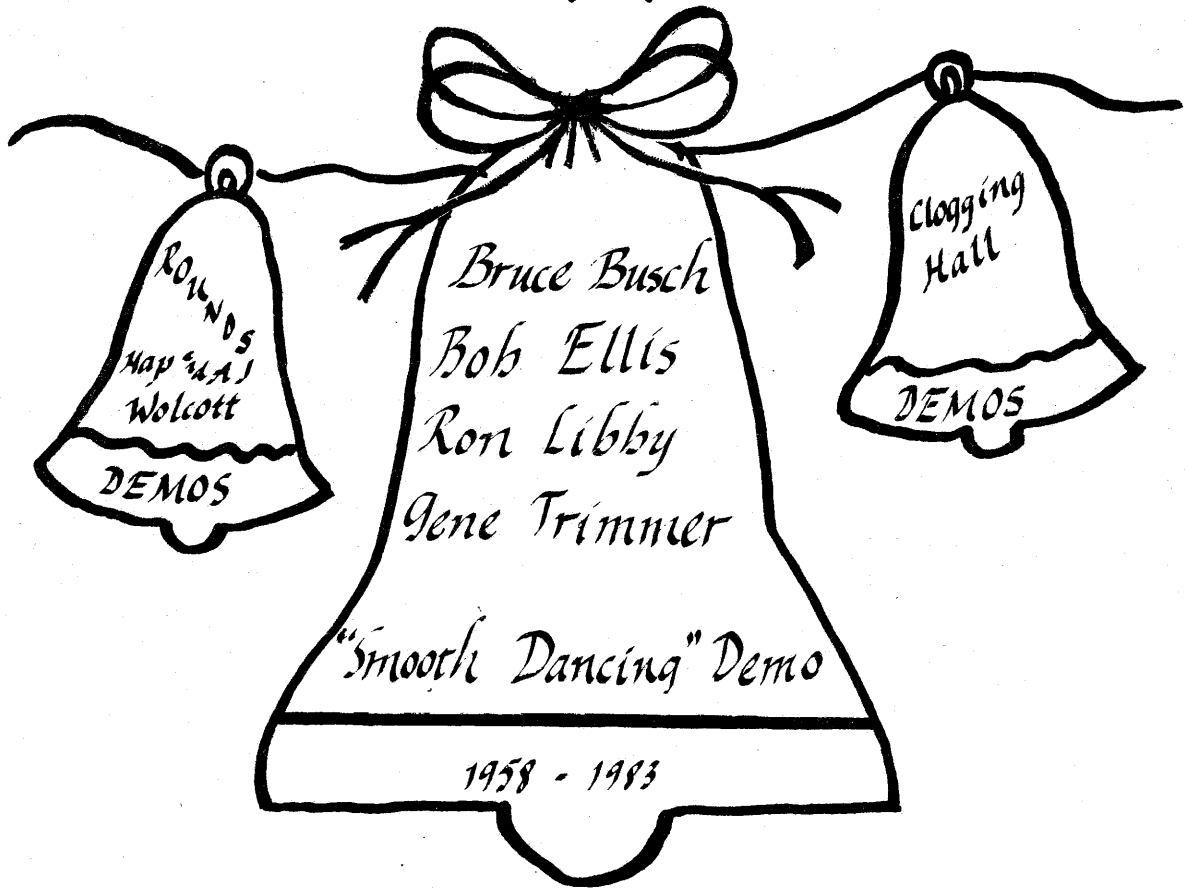 ROUNDS
Hap AJ
Wolcott
DEMOS
Bruce Busch
Bob Ellis
Ron Libby
Gene Trimmer
"Smooth Dancing" Demo
1958 - 1983
Clogging
Hall
DEMOS